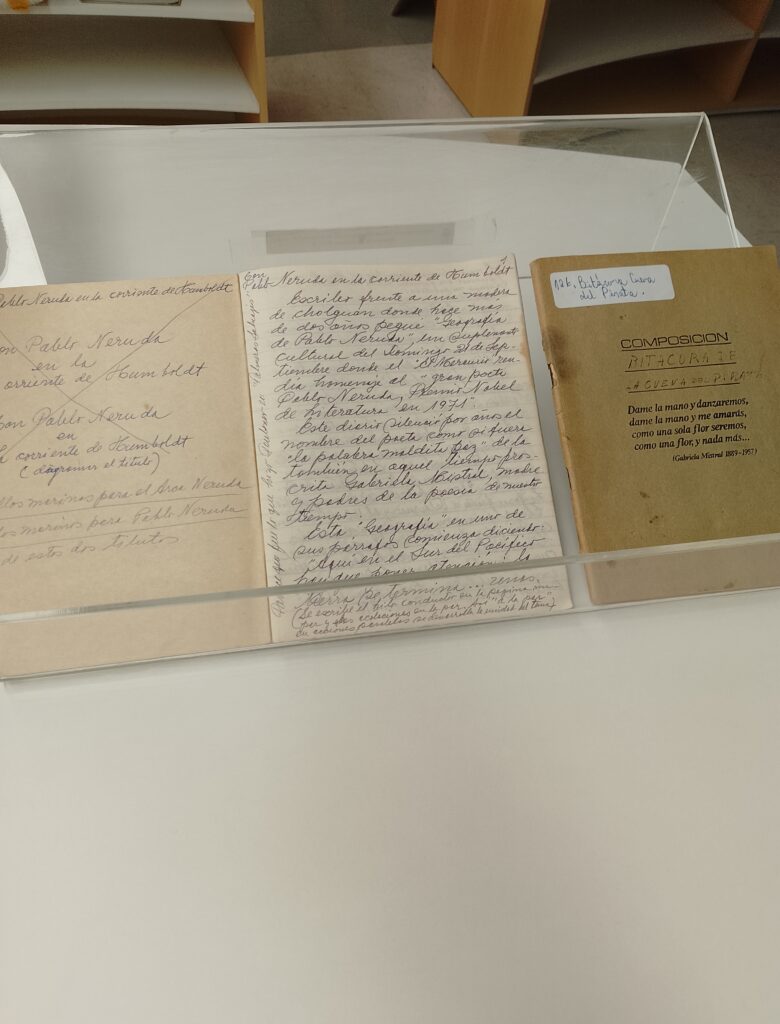 Pablo Neruda en la corriente de Humboldt
Con Pablo Neruda
en la
corriente de Humboldt
Con Pablo Neruda
en
la corriente de Humboldt
(diagramar el título)
los marinos para el Arca Neruda
los marinos para Pablo Neruda
de estos dos títulos
Con Pablo Neruda en la corriente de Humboldt
Escribo frente a una madera
de cholguán donde hace más
de dos años pegué "Geografía
de Pablo Neruda", un Suplemento
Cultural del Domingo 21 de Sep-
tiembre donde el "El Mercurio ren-
día homenaje al "gran poeta
Pablo Neruda, Premio Nobel
de Literatura en 1971".
Este diario silenció por años el
nombre del poeta como si fuera
"la palabra maldita paz" de la
también en aquel tiempo pros-
crita Gabriela Mistral, madre
y padres de la poesía de nuestro
tiempo.
Esta "Geografía" en uno de
sus párrafos comienza diciendo:
"Aquí en el Sur del Pacífico
hay que poner atención a lo
tierra se termina...
(Se escribe el hilo conductor en la página im-
par y
en acciones paralelas se desarrolla la unidad del tema)
126. Bitácora Cueva
del Pirata.
COMPOSICION
BITACORA DE
LA CUEVA DEL PIRATA
Dame la mano y danzaremos,
dame la mano y me amarás,
como una sola flor seremos,
como una flor, y nada más...
(Gabriela Mistral 1889 - 1957)